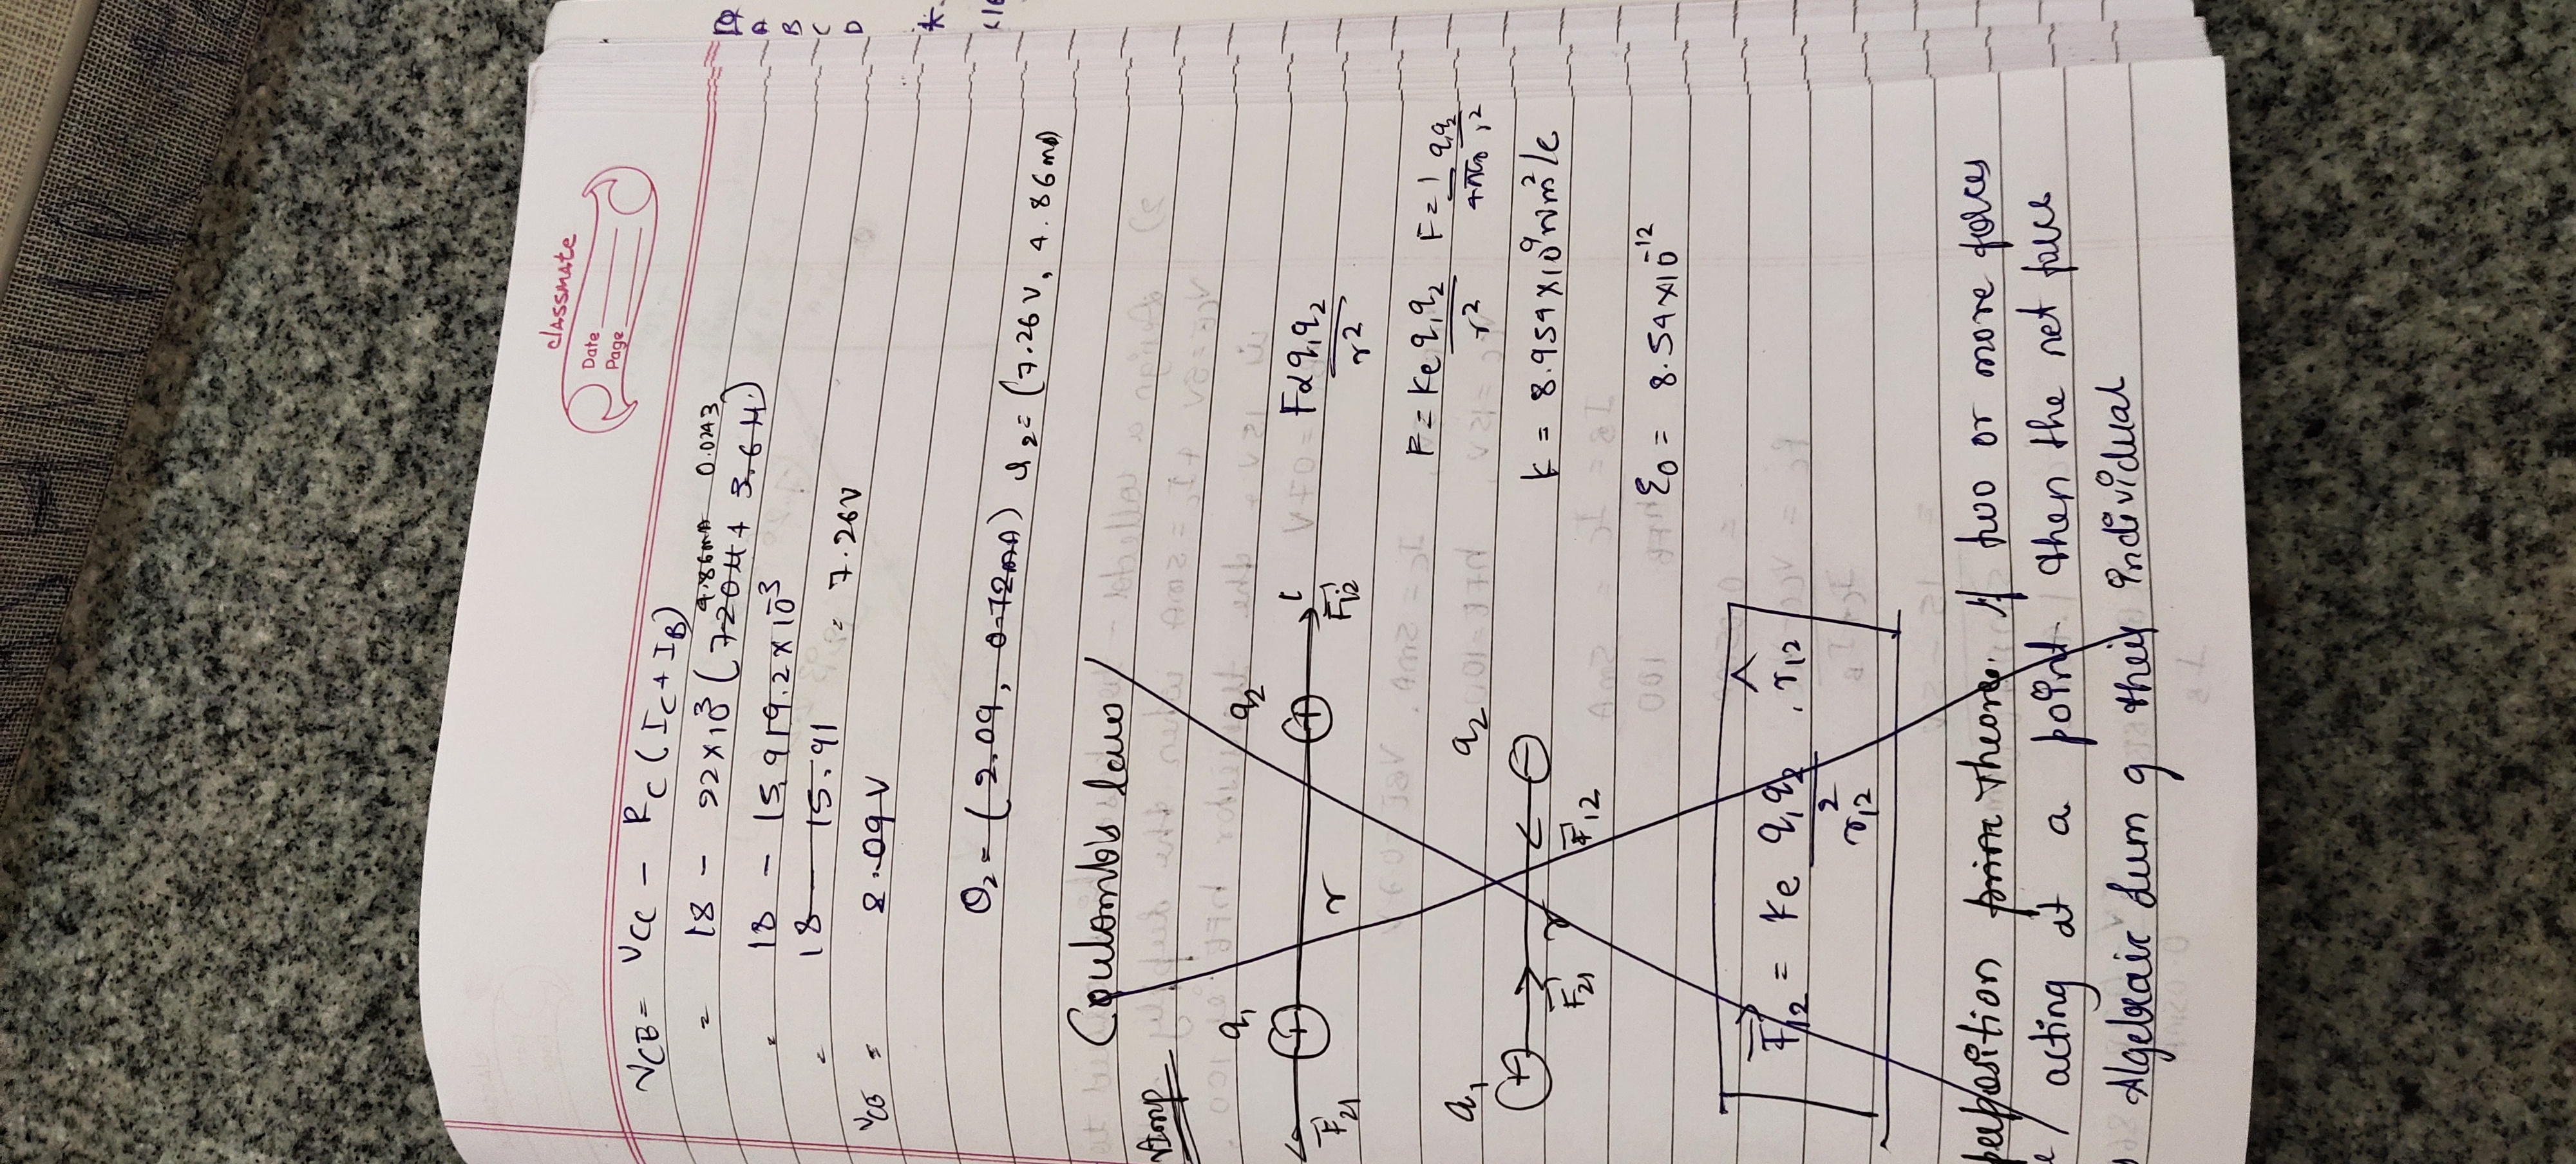 classmate
Date
Page
VCE = VCC - RC (IC + IB)
4.86mA 0.0243
= 18 - 22×10³ (720μ + 3.6μ)
= 18 - 15,919.2×10⁻³
= 18 - 15.91 = 7.26V
VCE = 2.09V
Q2 = (2.09, 0.72mA) Q2 = (7.26V, 4.86mA)
Coulomb's law
Imp
q1 q2
F21 r F12
F α q1q2/r²
F = Ke q1q2/r² F = 1/4πε0 q1q2/r²
q1 q2
F21 r F12
K = 8.954×10⁹Nm²/C
ε0 = 8.54×10⁻¹²
F12 = Ke q1q2/r12² . r̂12
perposition prin Theore. If two or more forces
acting at a point then the net force
Algebraic Sum of their individual
A
B
C
D